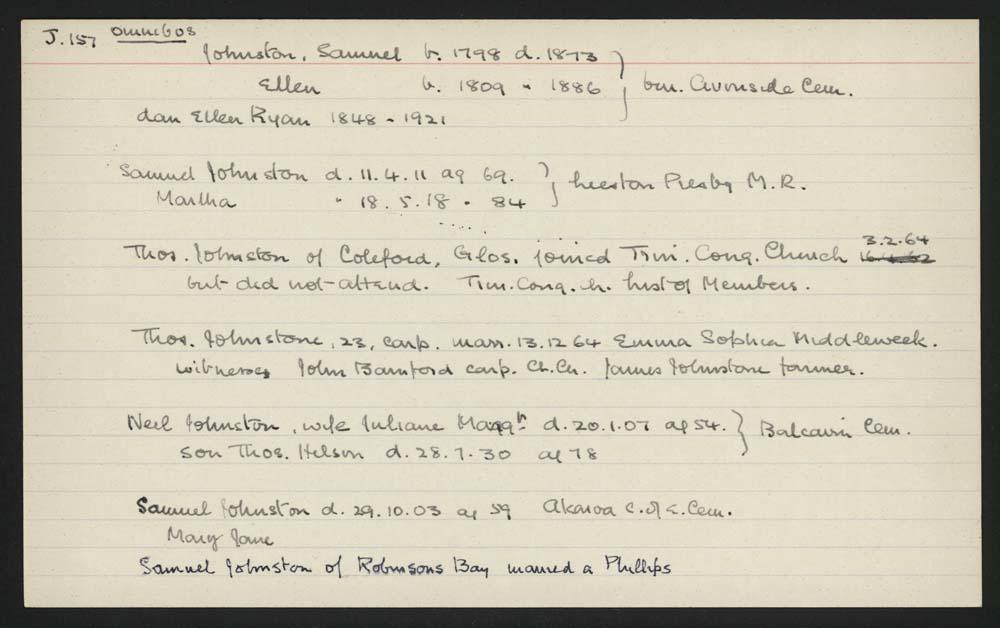 J.157 omnibos
Johnston, Samuel b. 1798 d. 1873
Ellen b. 1809 " 1886 } bur. Avonside Cem.
dau Ellen Ryan 1848 - 1921
Samuel Johnston d. 11.4.11 ag 69.
Martha " 18.5.18 " 84 } Leeston Presby M.R.
Thos. Johnston of Coleford, Glos. joined Trin. Cong. Church 16.4.62 3.2.64
but did not attend. Trin. Cong. Ch. list of Members.
Thos. Johnstone, 23, carp. marr. 13.12.64 Emma Sophia Middleweek.
witnesses John Bamford carp. Ch.Ch. James Johnstone farmer.
Neil Johnston, wife Juliane d. 20.1.07 ag 54. } Balcairn Cem.
son Thos. Helson d. 28.7.30 ag 78
Samuel Johnston d. 29.10.03 ag 59 Akaroa C. of E. Cem.
Mary Jane
Samuel Johnston of Robinsons Bay married a Phillips